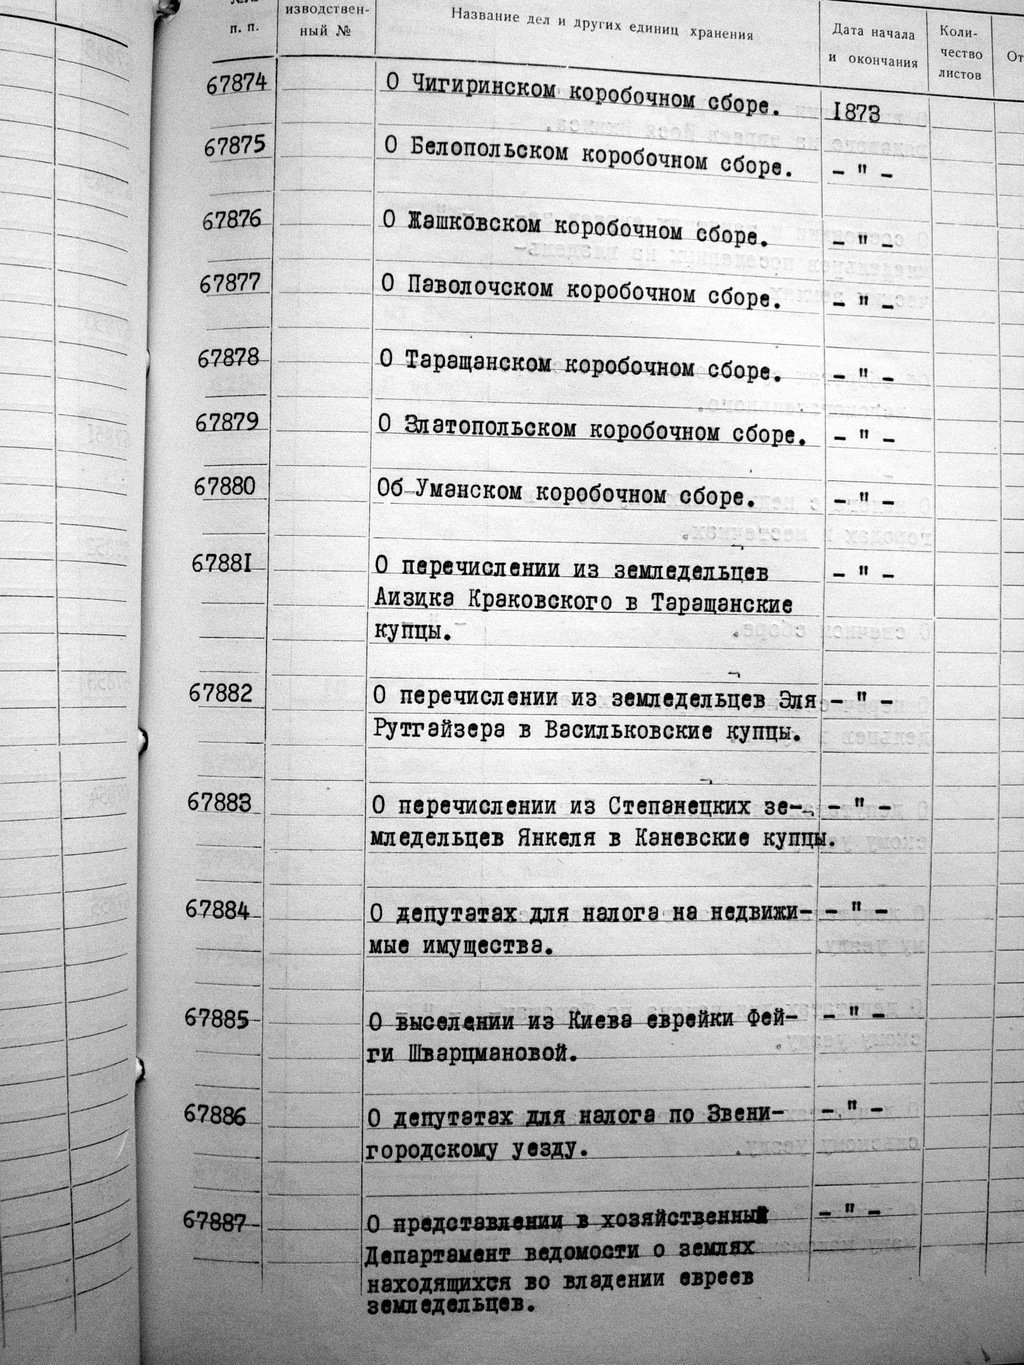 п. п.
изводствен-
ный №
Название дел и других единиц хранения
Дата начала
и окончания
Коли-
чество
листов
От
67874 О Чигиринском коробочном сборе. 1873
67875 О Белопольском коробочном сборе. - " -
67876 О Жашковском коробочном сборе. - " -
67877 О Паволочском коробочном сборе. - " -
67878 О Таращанском коробочном сборе. - " -
67879 О Златопольском коробочном сборе. - " -
67880 Об Уманском коробочном сборе. - " -
67881 О перечислении из земледельцев - " -
Аизика Краковского в Таращанские
купцы.
67882 О перечислении из земледельцев Эля - " -
Рутгайзера в Васильковские купцы.
67883 О перечислении из Степанецких зе- - " -
мледельцев Янкеля в Каневские купцы.
67884 О депутатах для налога на недвижи- - " -
мые имущества.
67885 О выселении из Киева еврейки Фей- - " -
ги Шварцмановой.
67886 О депутатах для налога по Звени- - " -
городскому уезду.
67887 О представлении в хозяйственный - " -
Департамент ведомости о землях
находящихся во владении евреев
земледельцев.